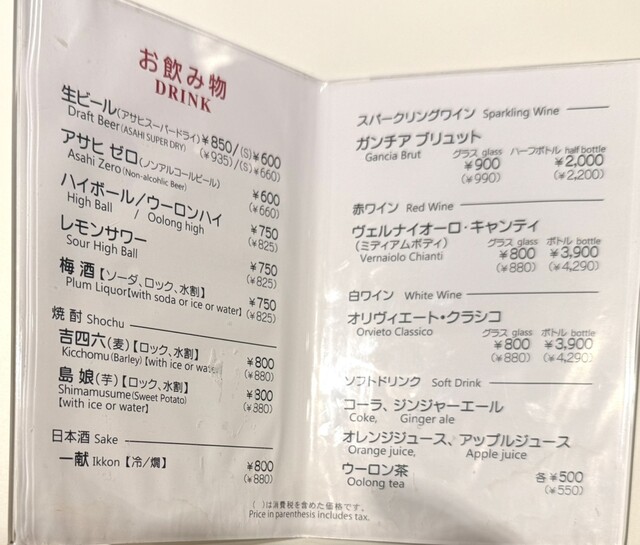 お飲み物
DRINK
生ビール(アサヒスーパードライ) ¥850/(S)¥600
Draft Beer(ASAHI SUPER DRY) (¥935)/(S)(¥660)
アサヒ ゼロ(ノンアルコールビール) ¥600
Asahi Zero(Non-alcohlic Beer) (¥660)
ハイボール/ウーロンハイ ¥750
High Ball / Oolong high (¥825)
レモンサワー ¥750
Sour High Ball (¥825)
梅 酒【ソーダ、ロック、水割】 ¥750
Plum Liquor【with soda or ice or water】 (¥825)
焼 酎 Shochu
吉四六(麦)【ロック、水割】 ¥800
Kicchomu(Barley)【with ice or water】 (¥880)
島 娘(芋)【ロック、水割】 ¥800
Shimamusume(Sweet Potato) (¥880)
【with ice or water】
日本酒 Sake
一献 Ikkon【冷/燗】 ¥800
(¥880)
スパークリングワイン Sparkling Wine
ガンチア ブリュット グラス glass ハーフボトル half bottle
Gancia Brut ¥900 ¥2,000
(¥990) (¥2,200)
赤ワイン Red Wine
ヴェルナイオーロ・キャンティ
(ミディアムボディ) グラス glass ボトル bottle
Vernaiolo Chianti ¥800 ¥3,900
(¥880) (¥4,290)
白ワイン White Wine
オリヴィエート・クラシコ
Orvieto Classico グラス glass ボトル bottle
¥800 ¥3,900
(¥880) (¥4,290)
ソフトドリンク Soft Drink
コーラ、ジンジャーエール
Coke, Ginger ale
オレンジジュース、アップルジュース
Orange juice, Apple juice
ウーロン茶 各¥500
Oolong tea (¥550)
( )は消費税を含めた価格です。
Price in parenthesis includes tax.